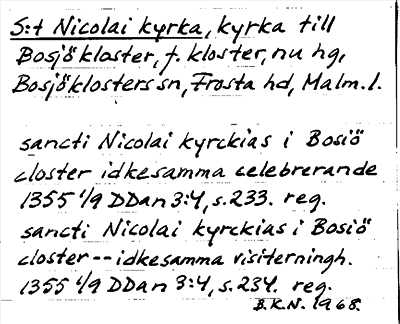 S:t Nicolai kyrka, kyrka till
Bosjökloster, f. kloster, nu hg,
Bosjöklosters sn, Frosta hd, Malm. l.
sancti Nicolai kyrckias i Bosiö
closter idkesamma celebrerande
1355 1/9 DDan 3:4, s. 233. reg.
sancti Nicolai kyrckias i Bosiö
closter -- idkesamma visiterningh.
1355 1/9 DDan 3:4, s. 234. reg.
B.K.N. 1968.